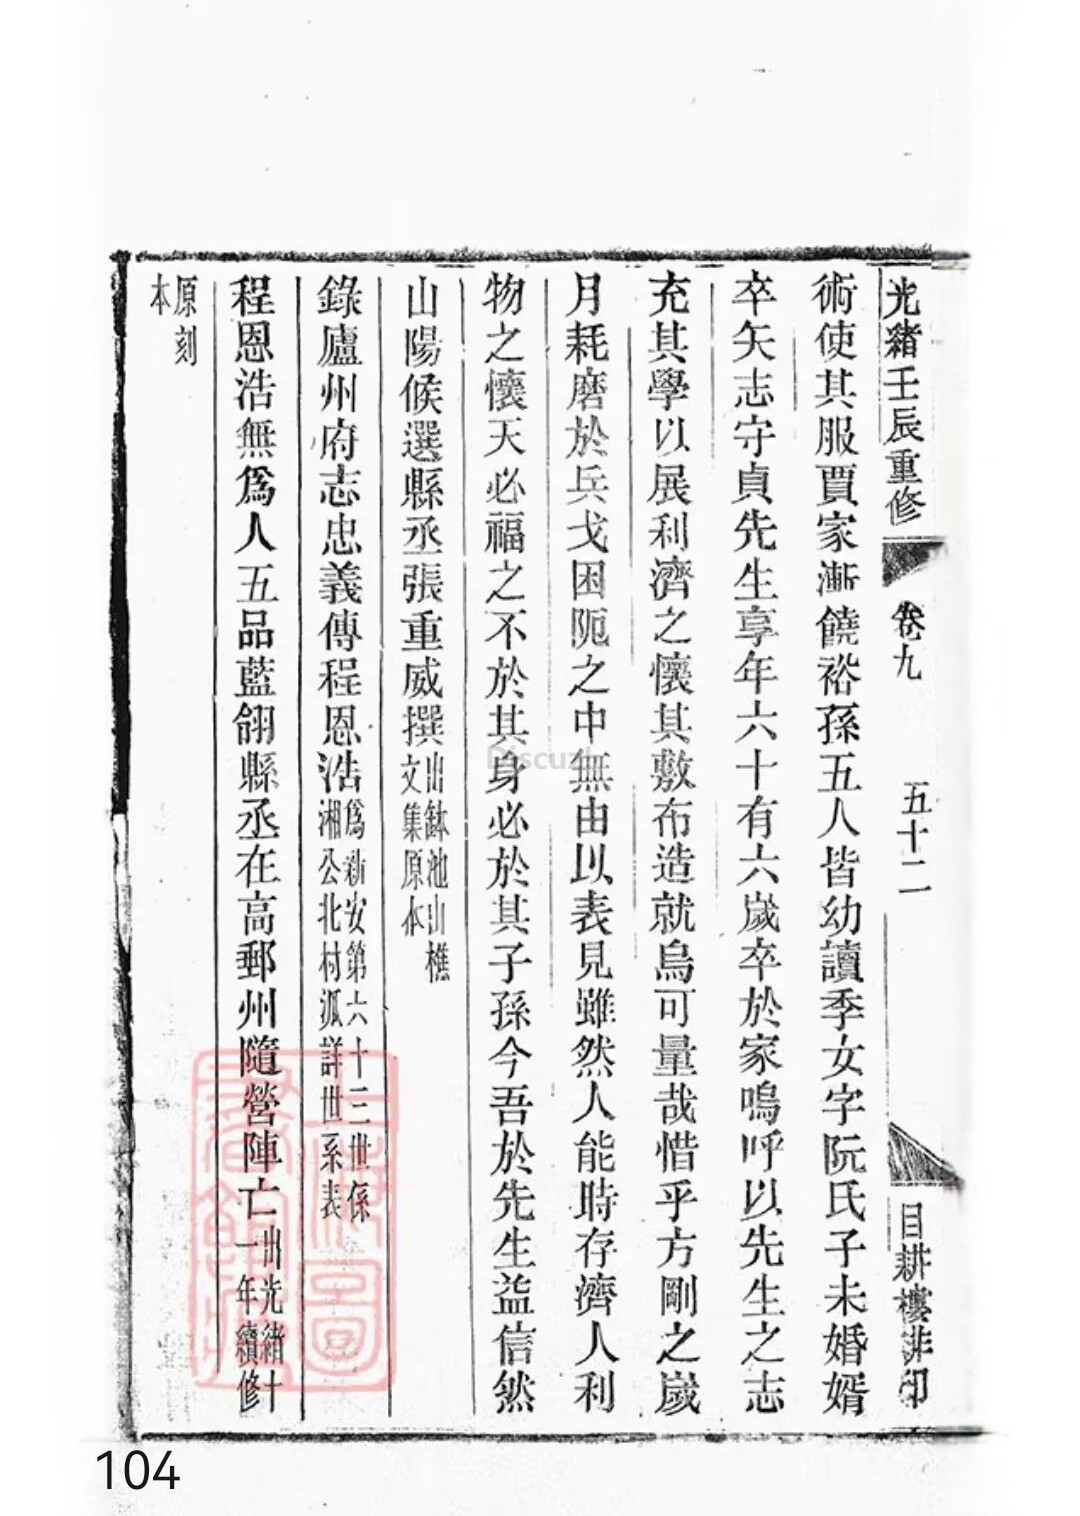 光緒壬辰重修 卷九 五十二 目耕樓排印
術使其服賈家漸饒裕孫五人皆幼讀季女字阮氏子未婚婿
卒矢志守貞先生享年六十有六歲卒於家嗚呼以先生之志
充其學以展利濟之懷其敷布造就烏可量哉惜乎方剛之歲
月耗磨於兵戈困阨之中無由以表見雖然人能時存濟人利
物之懷天必福之不於其身必於其子孫今吾於先生益信然
山陽候選縣丞張重威撰出鉢池山樵文集原本
錄廬州府志忠義傳程恩浩為新安第六十三世係湘公北村派詳世系表
程恩浩無爲人五品藍翎縣丞在高郵州隨營陣亡出光緒十一年續修
原刻本
上海圖書館藏
Discuz!
104